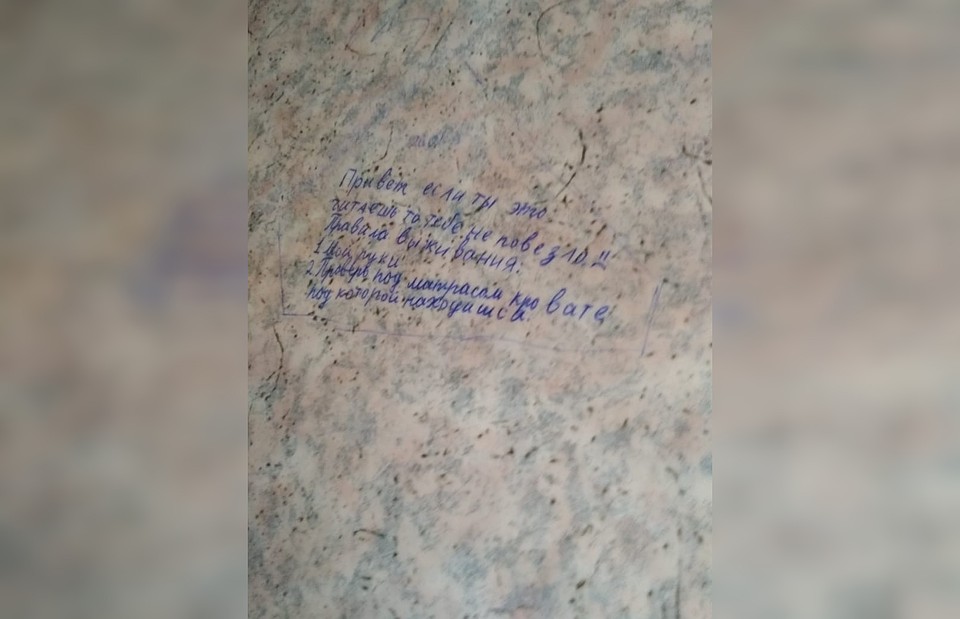 Привет если ты это
читаешь то тебе не повезло.!!
Правила выживания:
1 Мой руки
2. Проверь под матрасом кровате
под которой находишся.